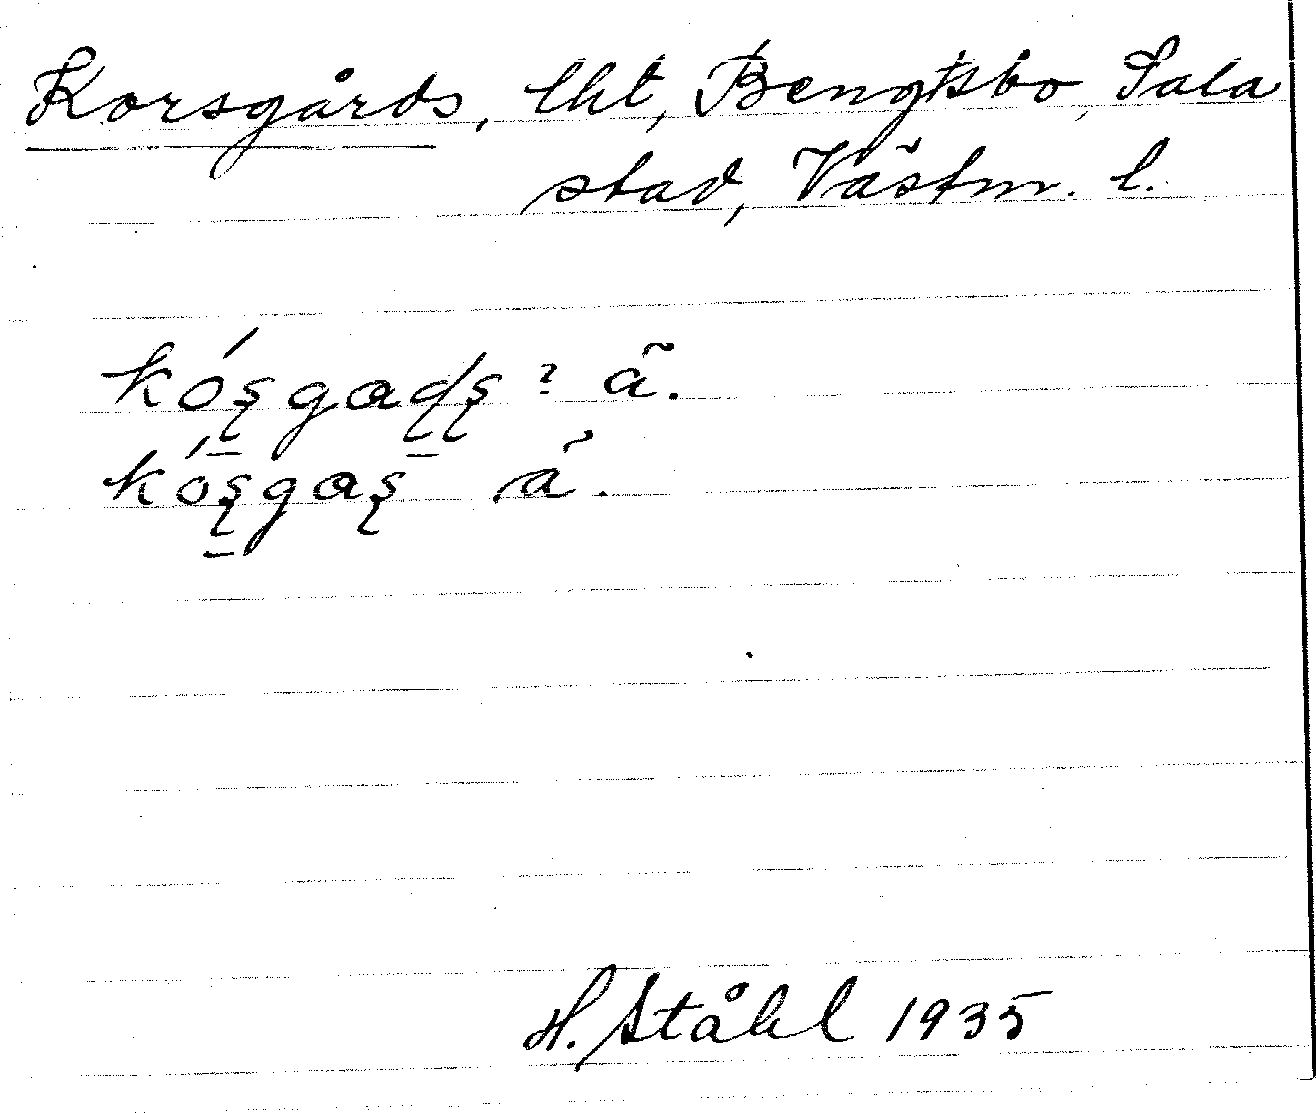 Korsgårds, lht, Bengtsbo, Sala
stad, Västm. l.
kóʂ̠gaɖ̠ʂ ? ã.
kóʂ̠gaʂ ã.
H. Ståhl 1935